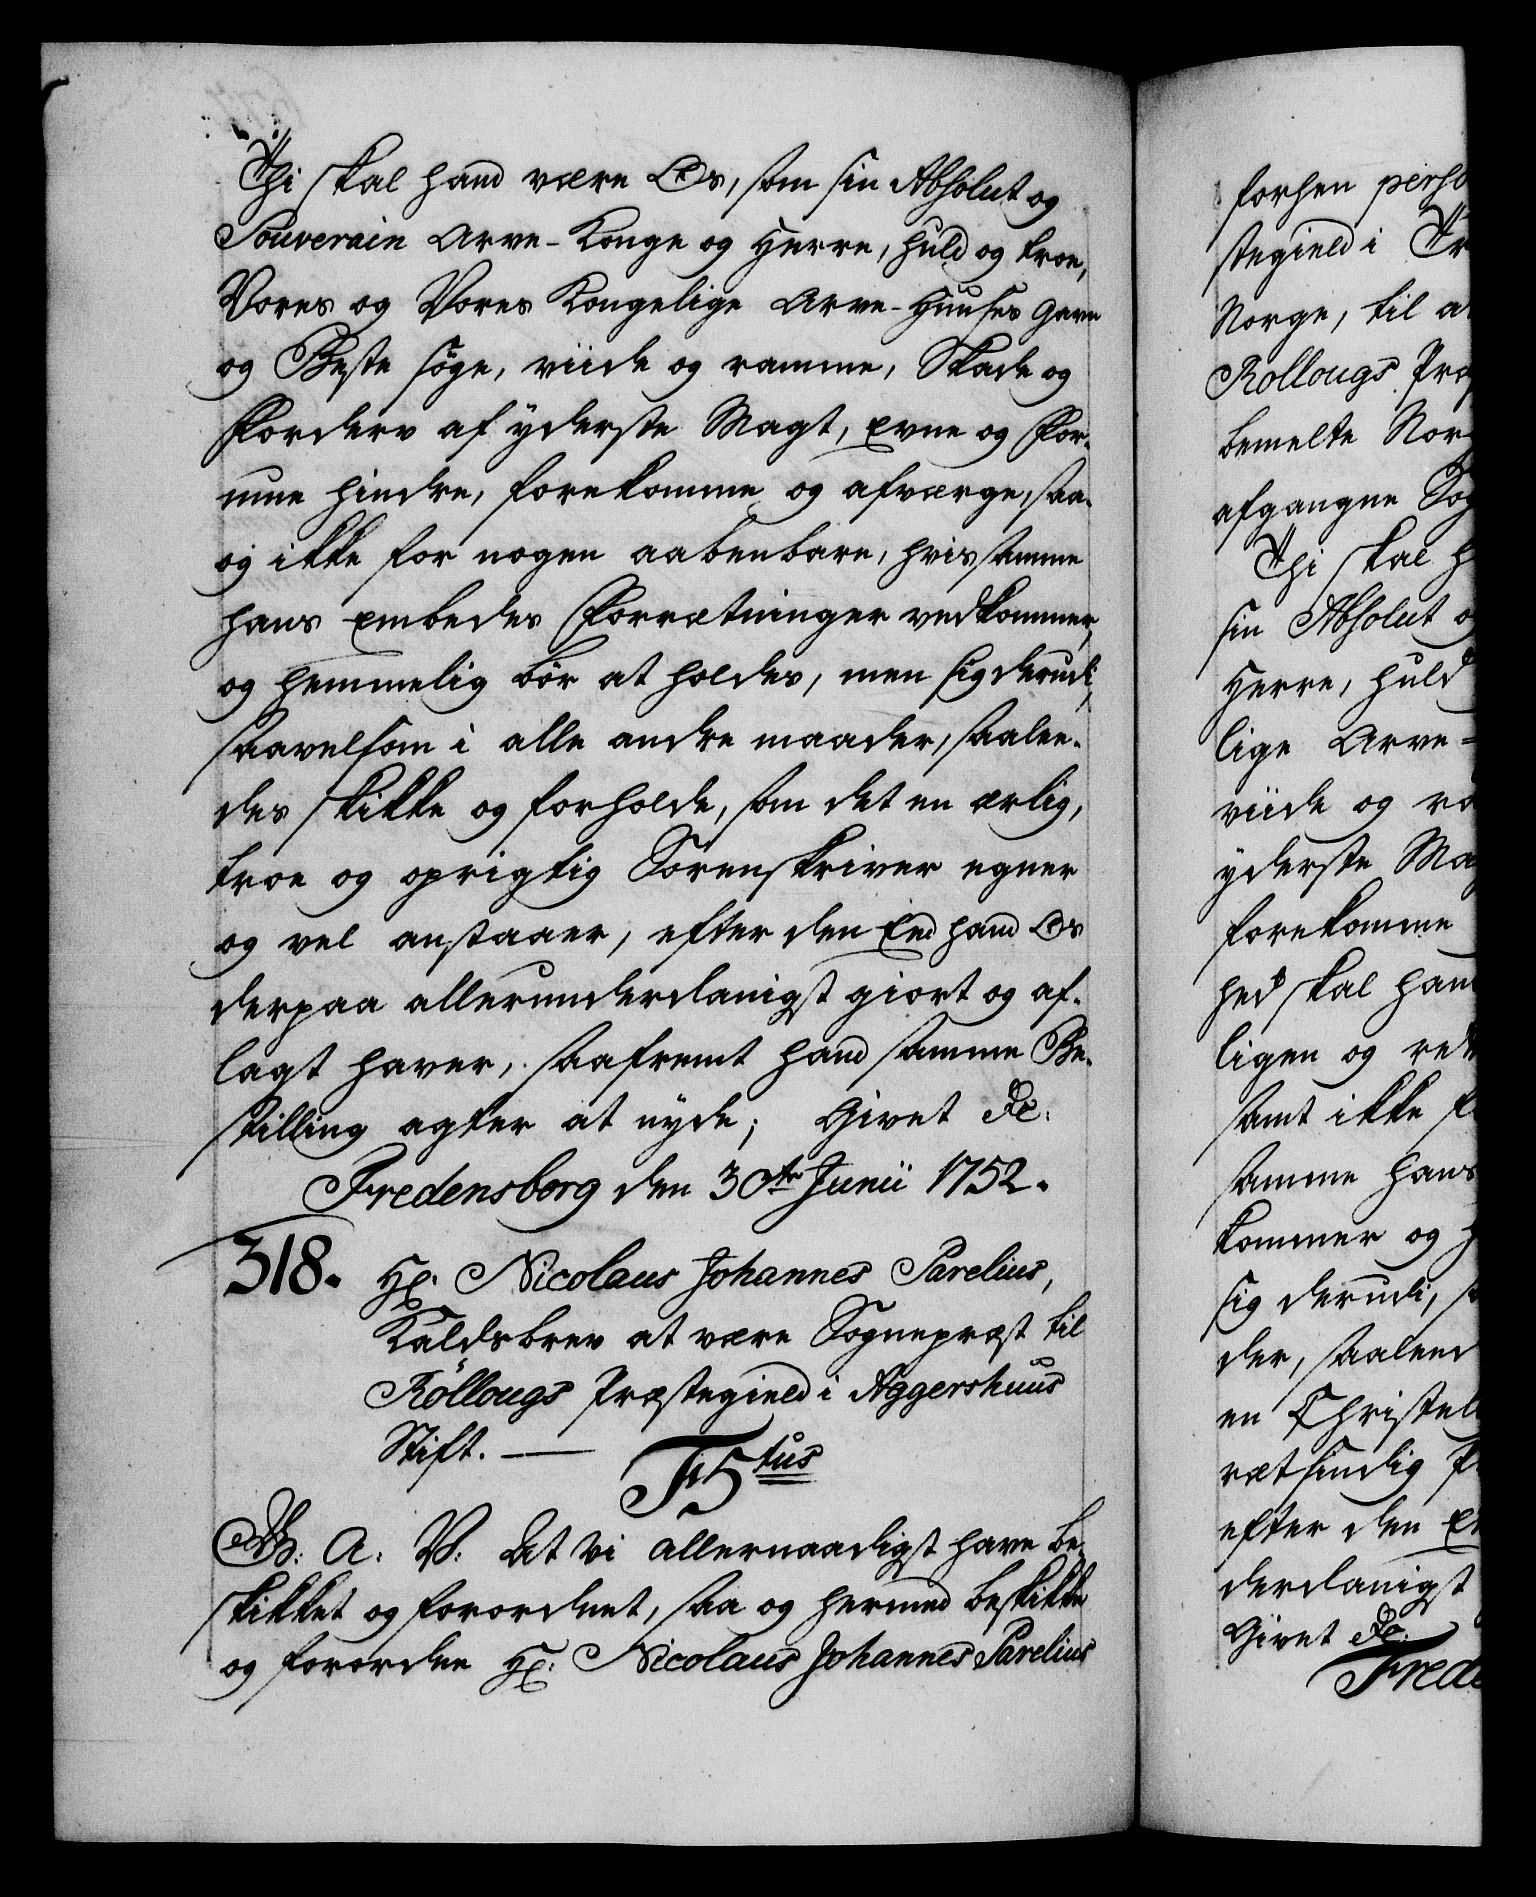 Thi skal hand være Os, som sin Absolut og
Souverain Arve-Konge og Herre, huld og troe,
Vores og Vores Kongelige Arve-Huuses Gavn
og Beste søge, viide og ramme, Skade og
Forderv af yderste Magt, evne og For-
mue hindre, forekomme og afværge, saa-
og ikke for nogen aabenbare, hvis samme
hans embedes Forrætninger vedkommer,
og hemmelig bør at holdes, men sig derudi,
saavelsom i alle andre maader, saalee-
des skikke og forholde, som det en ærlig,
troe og oprigtig Sorenskriver egner
og vel anstaaer, efter den Eed hand Os
derpaa allerunderdanigst giort og af-
lagt haver, saafremt hand samme Be-
stilling agter at nyde; Givet &c:
Fredensborg den 30te Junii 1752.
318. Hr. Nicolaus Johannes Parelius,
Kaldsbrev at være Sognepræst til
Röllougs Præstegield i Aggershuus
Stift. — F5tus
G: A: V: At Vi allernaadigst have be-
skikket og forordnet, saa og hermed beskikke
og forordne Hr: Nicolaus Johannes Parelius
forhen perso
stegield i Tr
Norge, til at
Rollougs Præ
bemelte Nor
afgangne Sog
Thi skal h
sin Absolut o
Herre, huld
lige Arve-
viide og ra
yderste Mag
forekomme
hed skal han
ligen og ret
samt ikke f
samme hans
kommer og h
sig derudi, s
der, saaleed
en Christel
rætsindig P
efter den E
derdanigst
Givet &c:
Frede